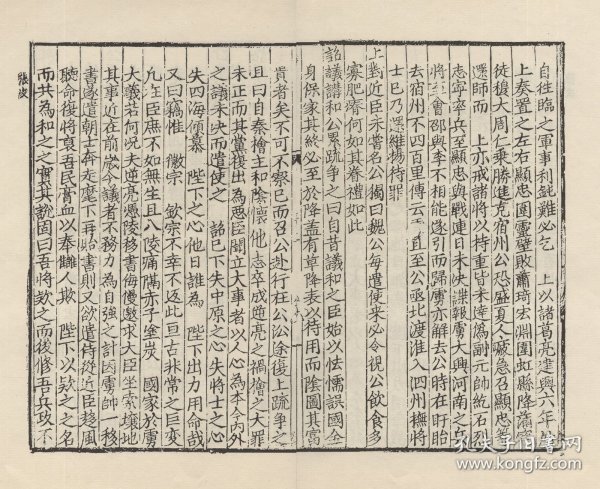 自往臨之軍事利鈍難必乞　上以諸葛亮建興六年
上奏置之左右顯忠圍靈壁敗蕭琦宏淵圍虹縣降蒲察
徒穆大周仁乗勝進克宿州公恐盛夏人疲急召顯忠等
還師而　上亦戒諸將以持重皆未達偽副元帥紇石烈
志寧率兵至顯忠與戰連日未決諜報虜大興河南之兵
將至會邵與李不相能遂引而歸虜亦解去公時在盱眙
去宿州不四百里傳云　直至公亟北渡淮入泗州撫將
士已乃還維揚待罪
上對近臣未嘗名公獨曰魏公每遣使來必令視公飲食多
寡肥瘠何如其眷禮如此
詔議講和公累疏爭之曰自昔議和之臣始以怯懦誤國全
身保家其終必至於降蓋有草降表以待用而陰圖其富
貴者矣不可不察已而召公赴行在公沿途復上疏爭之
且曰自秦檜主和陰懷他志卒成逆亮之禍檜之大罪
未正而其黨復出為惡臣聞立大事者以人心為本今內外
之議未決而遣使之　詔已下失中原之心失將士之心
失四海傾慕　陛下之心他日誰為　陛下出力用命哉
又曰竊惟　徽宗　欽宗不幸不返此亘古非常之巨變
凡在臣庶不如無生且八陵痛隔赤子塗炭　國家於虜
大義若何況夫逆亮憑陵移書侮慢邀求大臣坐索壤地
其事近在前歲今議者不務力為自強之計因虜帥一移
書遂遣朝士奔走麾下再貽書則又欲遣侍從近臣趨風
聽命復將裒吾民膏血以奉讎人欺　陛下以款之之名
而共為和之之實其説固曰吾將款之而後修吾兵政不
張浚
孔夫子舊書網
www.kongfz.com